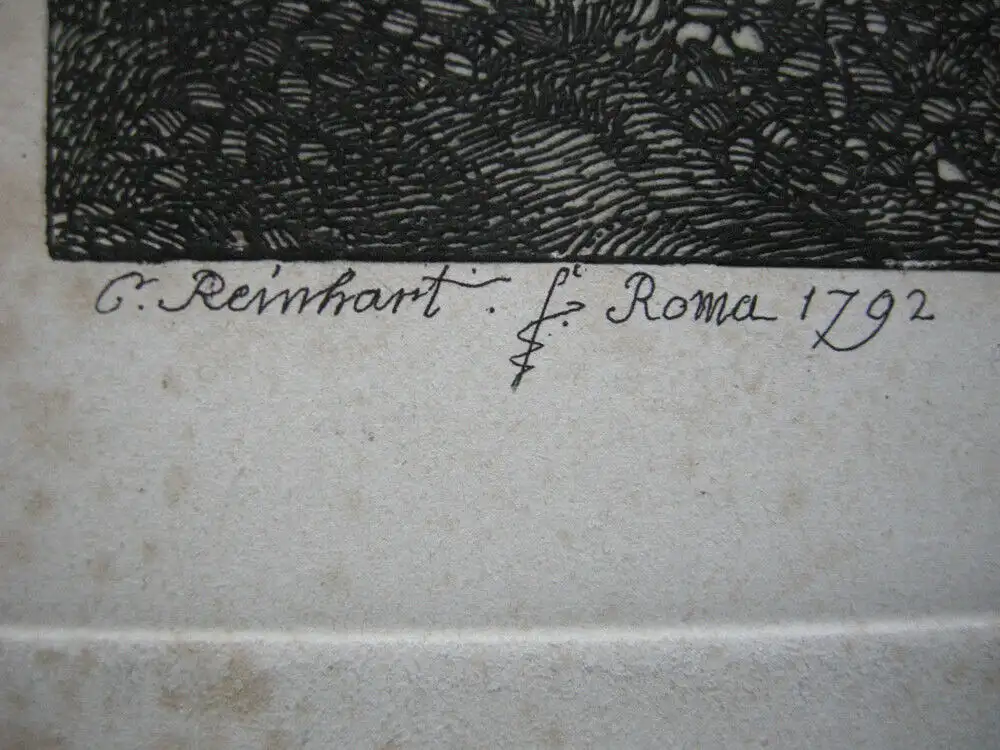 C. Reinhart. f. Roma 1792